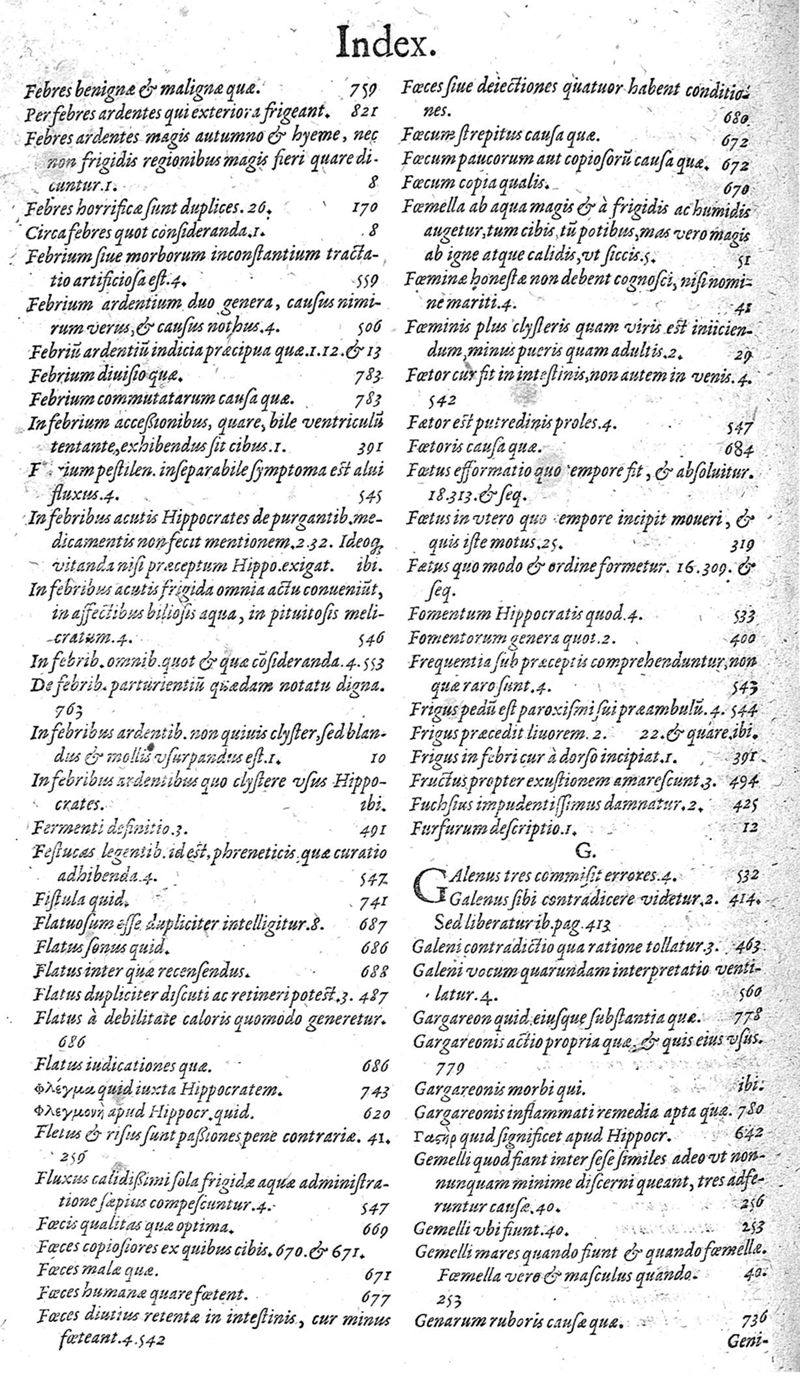 Index.
Febres benignæ & malignæ quæ. 759
Per febres ardentes qui exteriora frigeant. 821
Febres ardentes magis autumno & hyeme, nec
non frigidis regionibus magis fieri quare di-
cuntur.1. 8
Febres horrificæ sunt duplices. 26. 170
Circa febres quot consideranda.1. 8
Febrium siue morborum inconstantium tracta-
tio artificiosa est.4. 559
Febrium ardentium duo genera, causus nimi-
rum verus, & causus nothus.4. 506
Febriū ardentiū indicia præcipua quæ.1.12.& 13
Febrium diuisio quæ. 783
Febrium commutatarum causa quæ. 783
In febrium accessionibus, quare, bile ventriculū
tentante, exhibendus sit cibus.1. 391
F rium pestilen. inseparabile symptoma est alui
fluxus.4. 545
In febribus acutis Hippocrates de purgantib. me-
dicamentis non fecit mentionem.2.32. Ideoq;
vitanda nisi præceptum Hippo. exigat. ibi.
In febribus acutis frigida omnia actu conueniūt,
in affectibus biliosis aqua, in pituitosis meli-
cratum.4. 546
In febrib. omnib. quot & quæ cōsideranda.4.553
De febrib. parturientiū quædam notatu digna.
763
In febribus ardentib. non quiuis clyster, sed blan-
dus & mollis vsurpandus est.1. 10
In febribus ardentibus quo clystere vsus Hippo-
crates. ibi.
Fermenti definitio.3. 491
Festucas legentib. id est, phreneticis quæ curatio
adhibenda.4. 547
Fistula quid. 741
Flatuosum esse dupliciter intelligitur.8. 687
Flatus sonus quid. 686
Flatus inter quæ recensendus. 688
Flatus dupliciter discuti ac retineri potest.3. 487
Flatus à debilitate caloris quomodo generetur.
686
Flatus iudicationes quæ. 686
Φλέγμα quid iuxta Hippocratem. 743
Φλεγμονὴ apud Hippocr. quid. 620
Fletus & risus sunt passiones pene contrariæ. 41.
259
Fluxus calidissimi sola frigidæ aquæ administra-
tione sæpius compescuntur.4. 547
Fœcis qualitas quæ optima. 669
Fœces copiosiores ex quibus cibis. 670. & 671.
Fœces malæ quæ. 671
Fœces humanæ quare fœtent. 677
Fœces diutius retentæ in intestinis, cur minus
fœteant.4.542
Fœces siue deiectiones quatuor habent conditio-
nes. 680
Fœcum strepitus causa quæ. 672
Fœcum paucorum aut copiosorū causa quæ. 672
Fœcum copia qualis. 670
Fœmella ab aqua magis & à frigidis ac humidis
augetur, tum cibis, tū potibus, mas vero magis
ab igne atque calidis, vt siccis.5. 51
Fœminæ honestæ non debent cognosci, nisi nomi-
ne mariti.4. 41
Fœminis plus clysteris quam viris est iniicien-
dum, minus pueris quam adultis.2. 29
Fœtor cur fit in intestinis, non autem in venis.4.
542
Fœtor est putredinis proles.4. 547
Fœtoris causa quæ. 684
Fœtus efformatio quo empore fit, & absoluitur.
18.313.& seq.
Fœtus in vtero quo empore incipit moueri, &
quis iste motus.25. 319
Fœtus quo modo & ordine formetur. 16.309. &
seq.
Fomentum Hippocratis quod.4. 533
Fomentorum genera quot.2. 400
Frequentia sub præceptis comprehenduntur, non
quæ raro sunt.4. 543
Frigus pedū est paroxismi sui præambulū.4. 544
Frigus præcedit liuorem. 2. 22.& quare, ibi.
Frigus in febri cur à dorso incipiat.1. 391.
Fructus propter exustionem amarescunt.3. 494
Fuchsius impudentissimus damnatur.2. 425
Furfurum descriptio.1. 12
G.
GAlenus tres commisit errores.4. 532
Galenus sibi contradicere videtur.2. 414.
Sed liberatur ib. pag. 413
Galeni contradictio qua ratione tollatur.3. 463
Galeni vocum quarundam interpretatio venti-
latur.4. 560
Gargareon quid, eiusque substantia quæ. 778
Gargareonis actio propria quæ, & quis eius vsus.
779
Gargareonis morbi qui. ibi.
Gargareonis inflammati remedia apta quæ. 780
Γαστὴρ quid significet apud Hippocr. 642
Gemelli quod fiant inter sese similes adeo vt non-
nunquam minime discerni queant, tres adfe-
runtur causæ.40. 256
Gemelli vbi fiunt.40. 253
Gemelli mares quando fiunt & quando fœmellæ.
Fœmella vero & masculus quando. 40.
253
Genarum ruboris causæ quæ. 736
Geni-